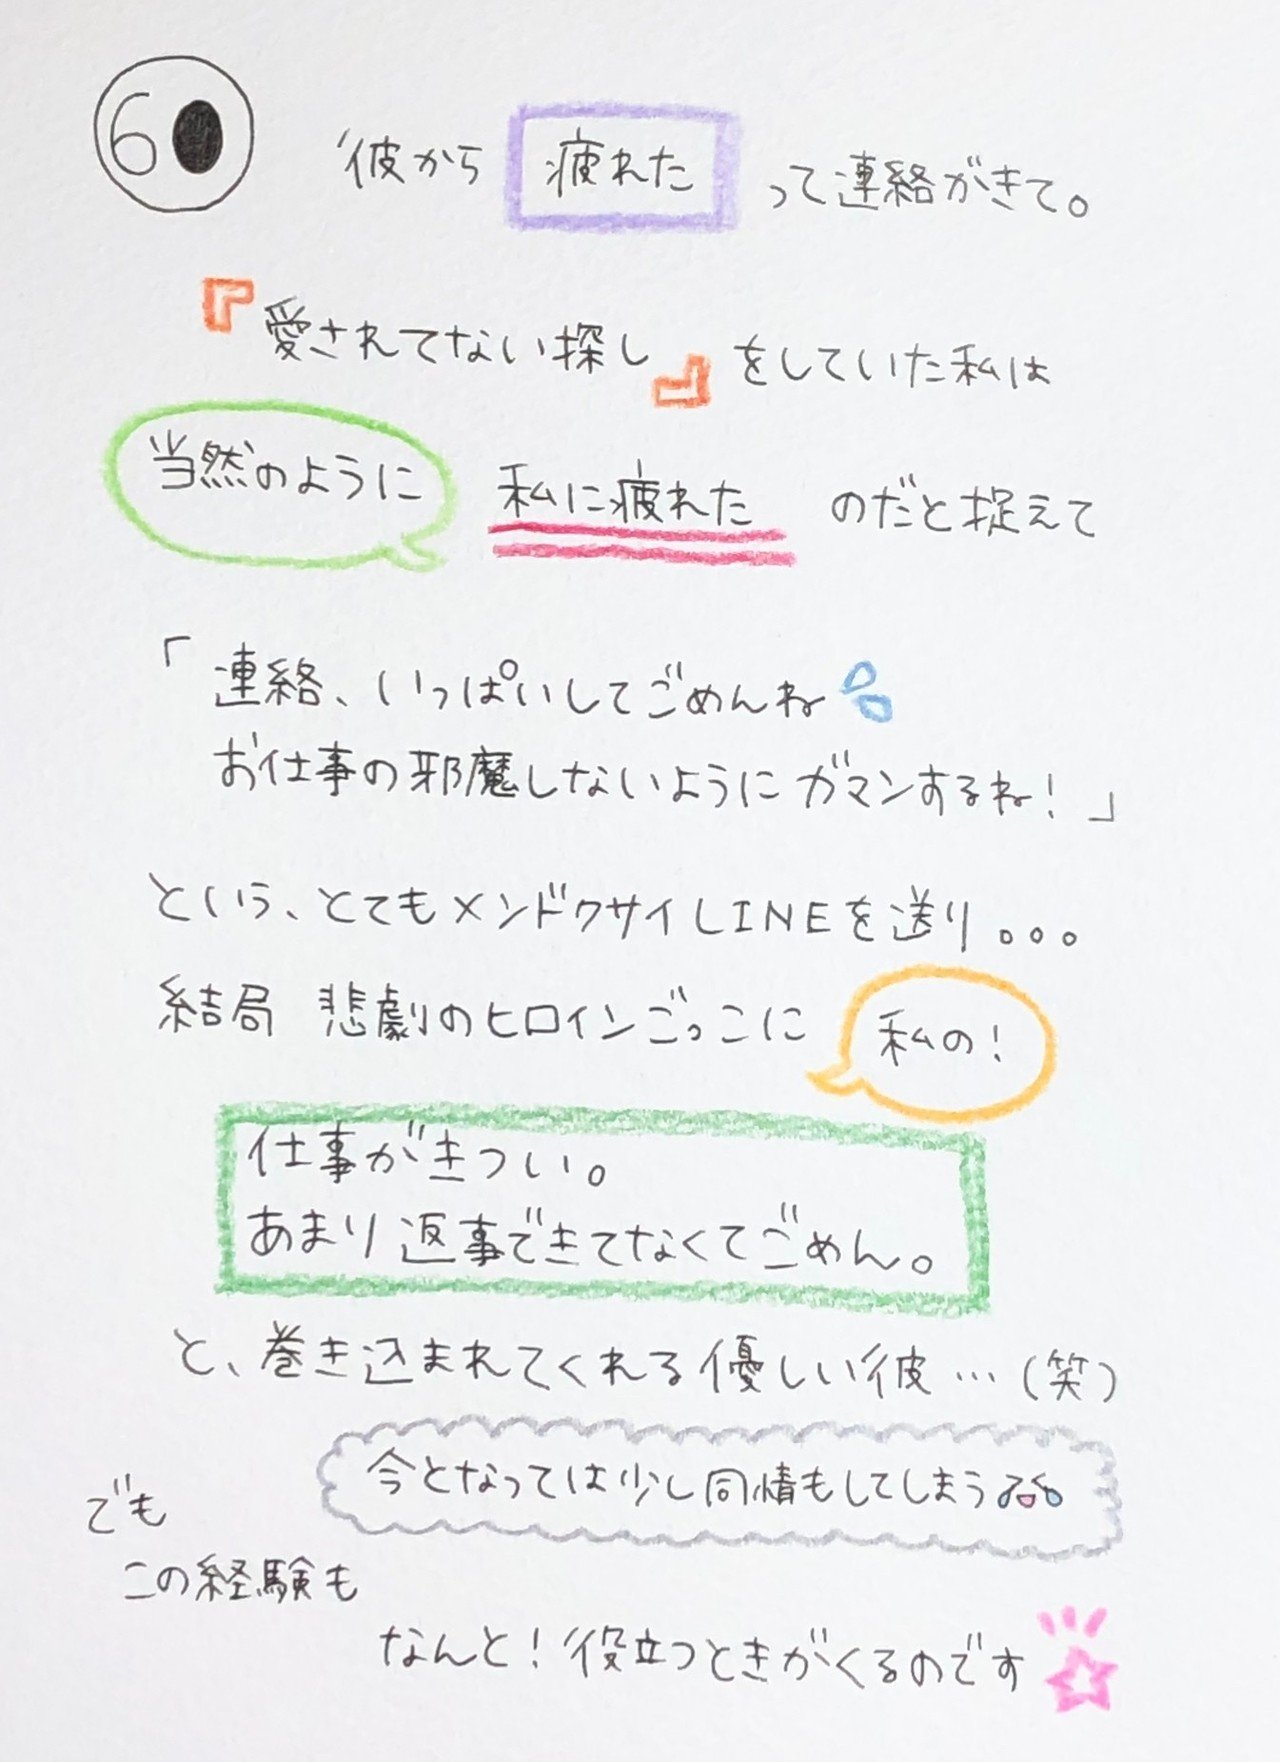 60
彼から 疲れた って連絡がきて。
『愛されてない探し』をしていた私は
当然のように 私に疲れた のだと捉えて
「連絡、いっぱいしてごめんね
お仕事の邪魔しないようにガマンするね!」
という、とてもメンドクサイLINEを送り。。。
結局 悲劇のヒロインごっこに 私の!
仕事がきつい。
あまり返事できてなくてごめん。
と、巻き込まれてくれる優しい彼…(笑)
今となっては少し同情もしてしまう
でも
この経験も
なんと!役立つときがくるのです